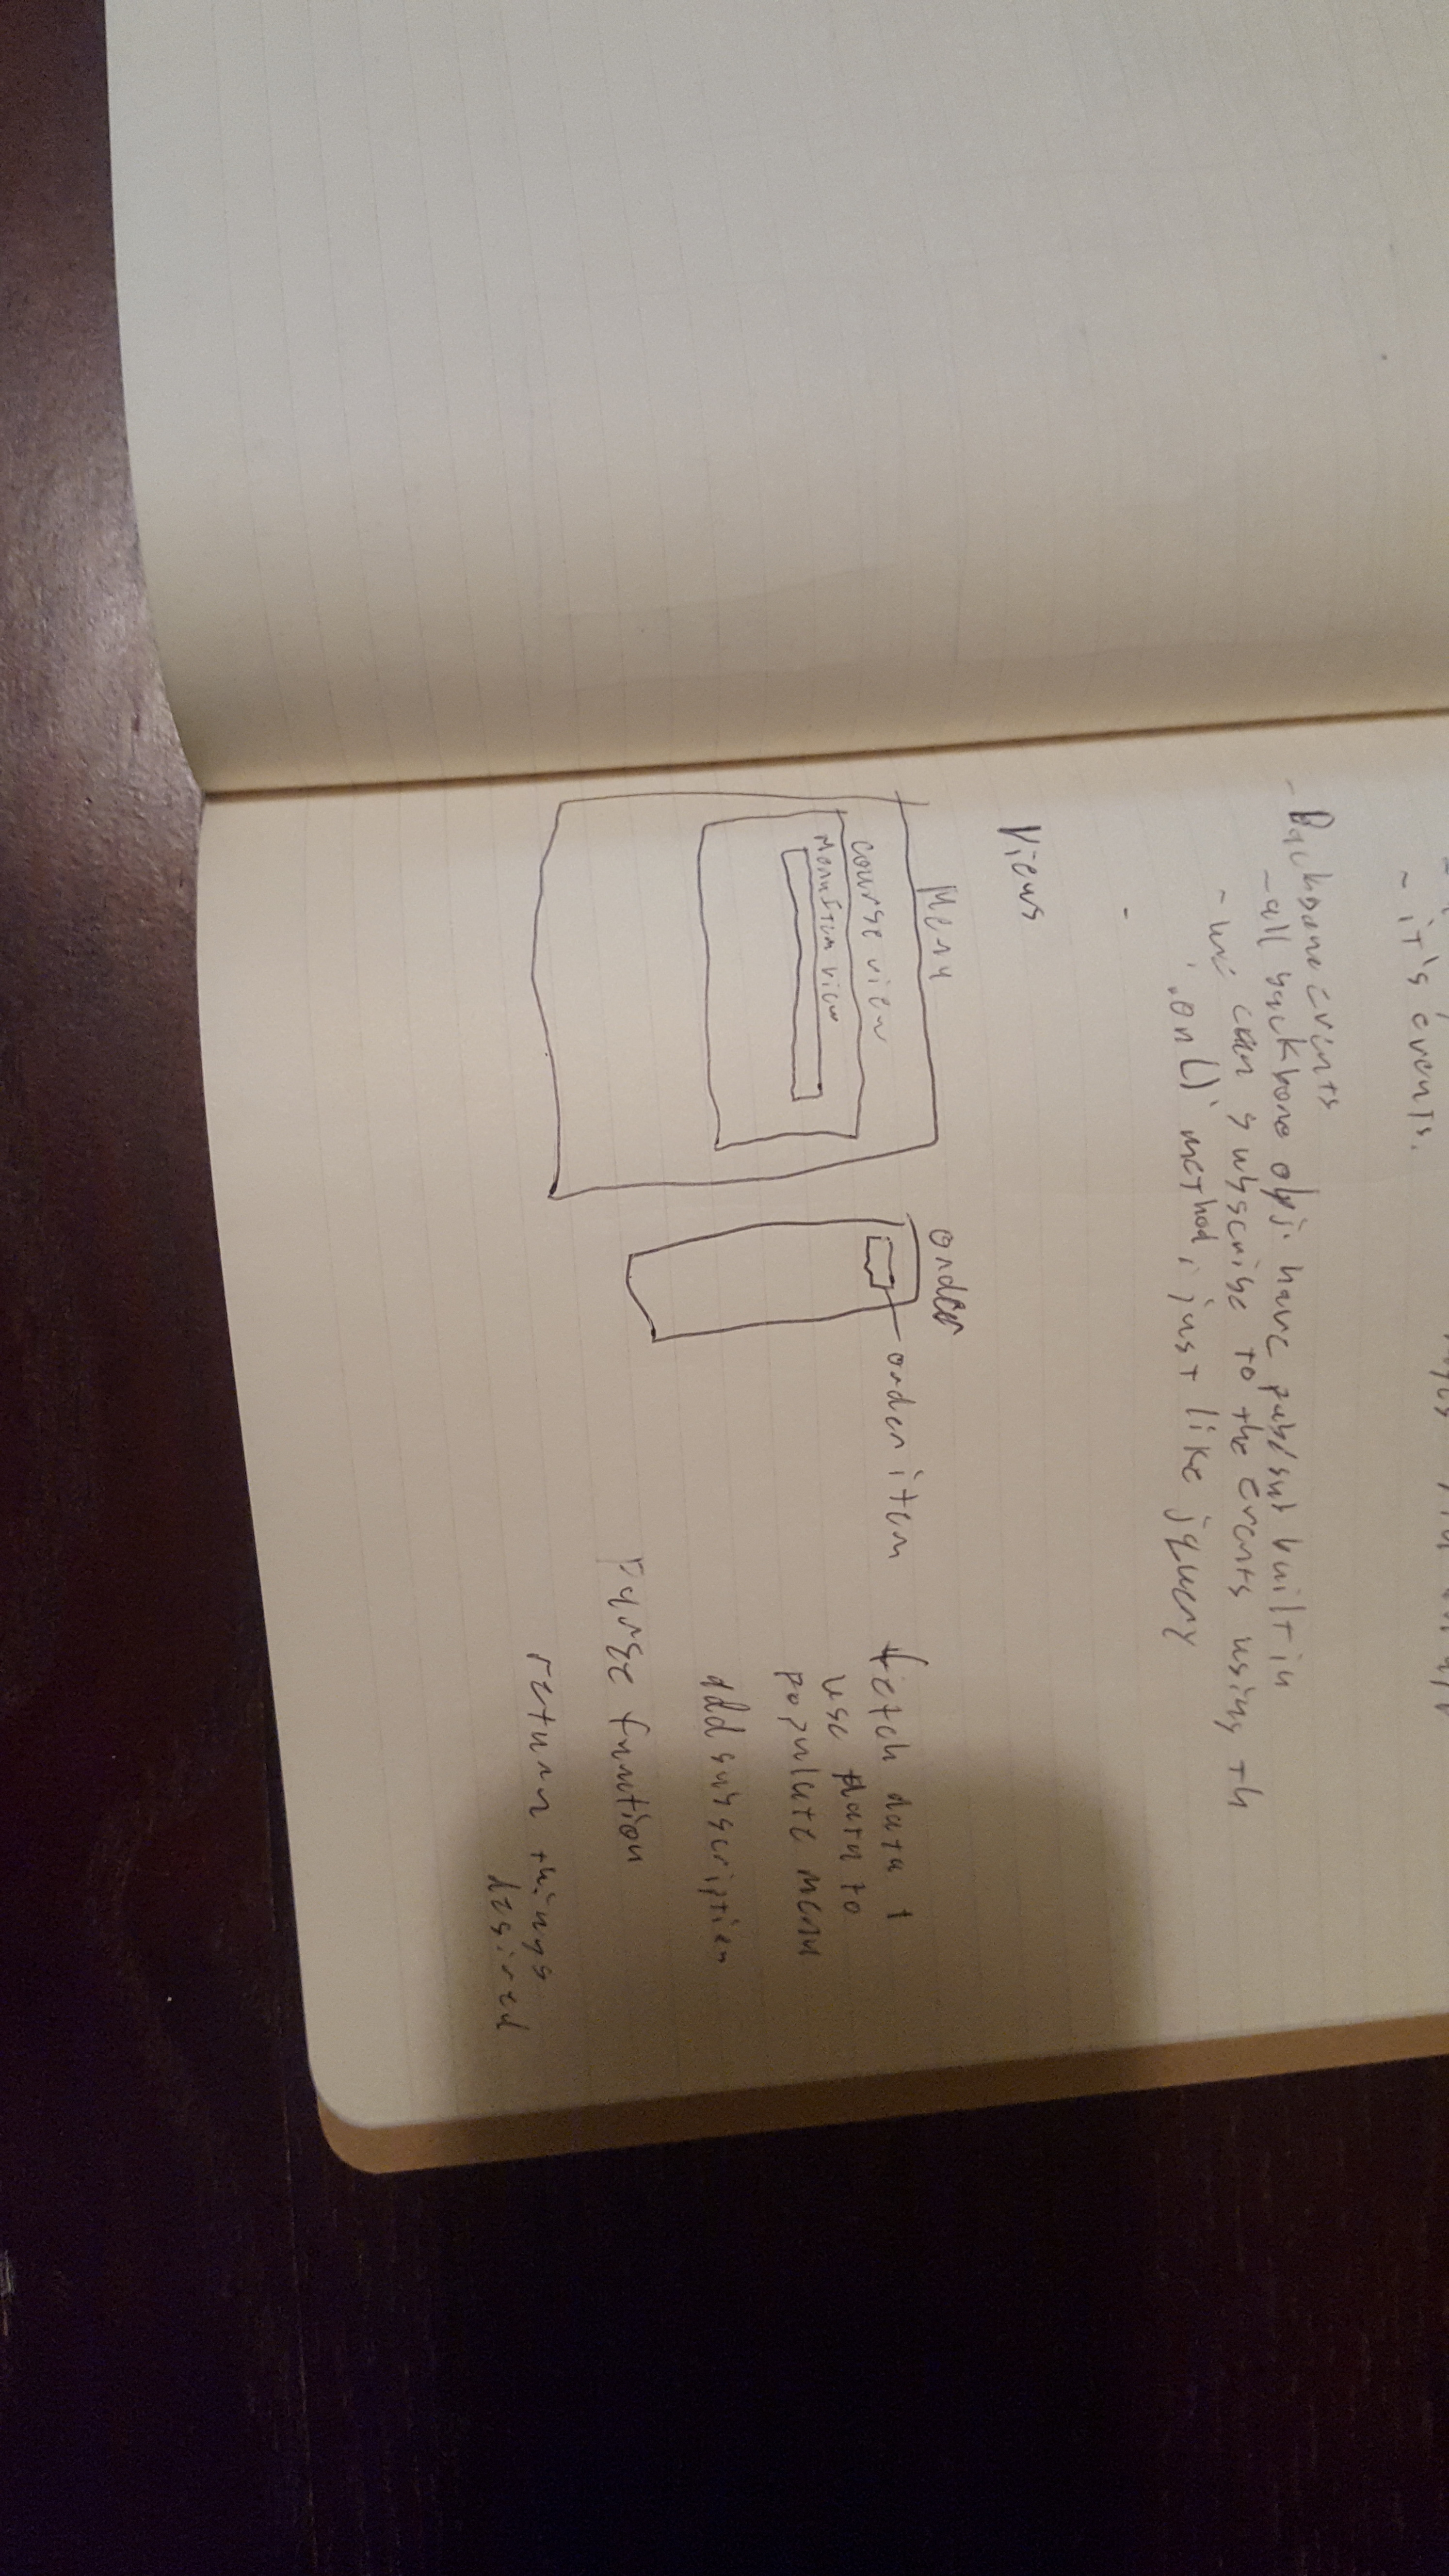 - it's events.
- Backbone events
- all backbone obj. have pub/sub built in
- we can subscribe to the events using th
'.on()' method, just like jquery
-
Views
Menu
course view
MenuItem view
order
order item
fetch data +
use data to
populate menu
add subscription
Parse function
return things
desired